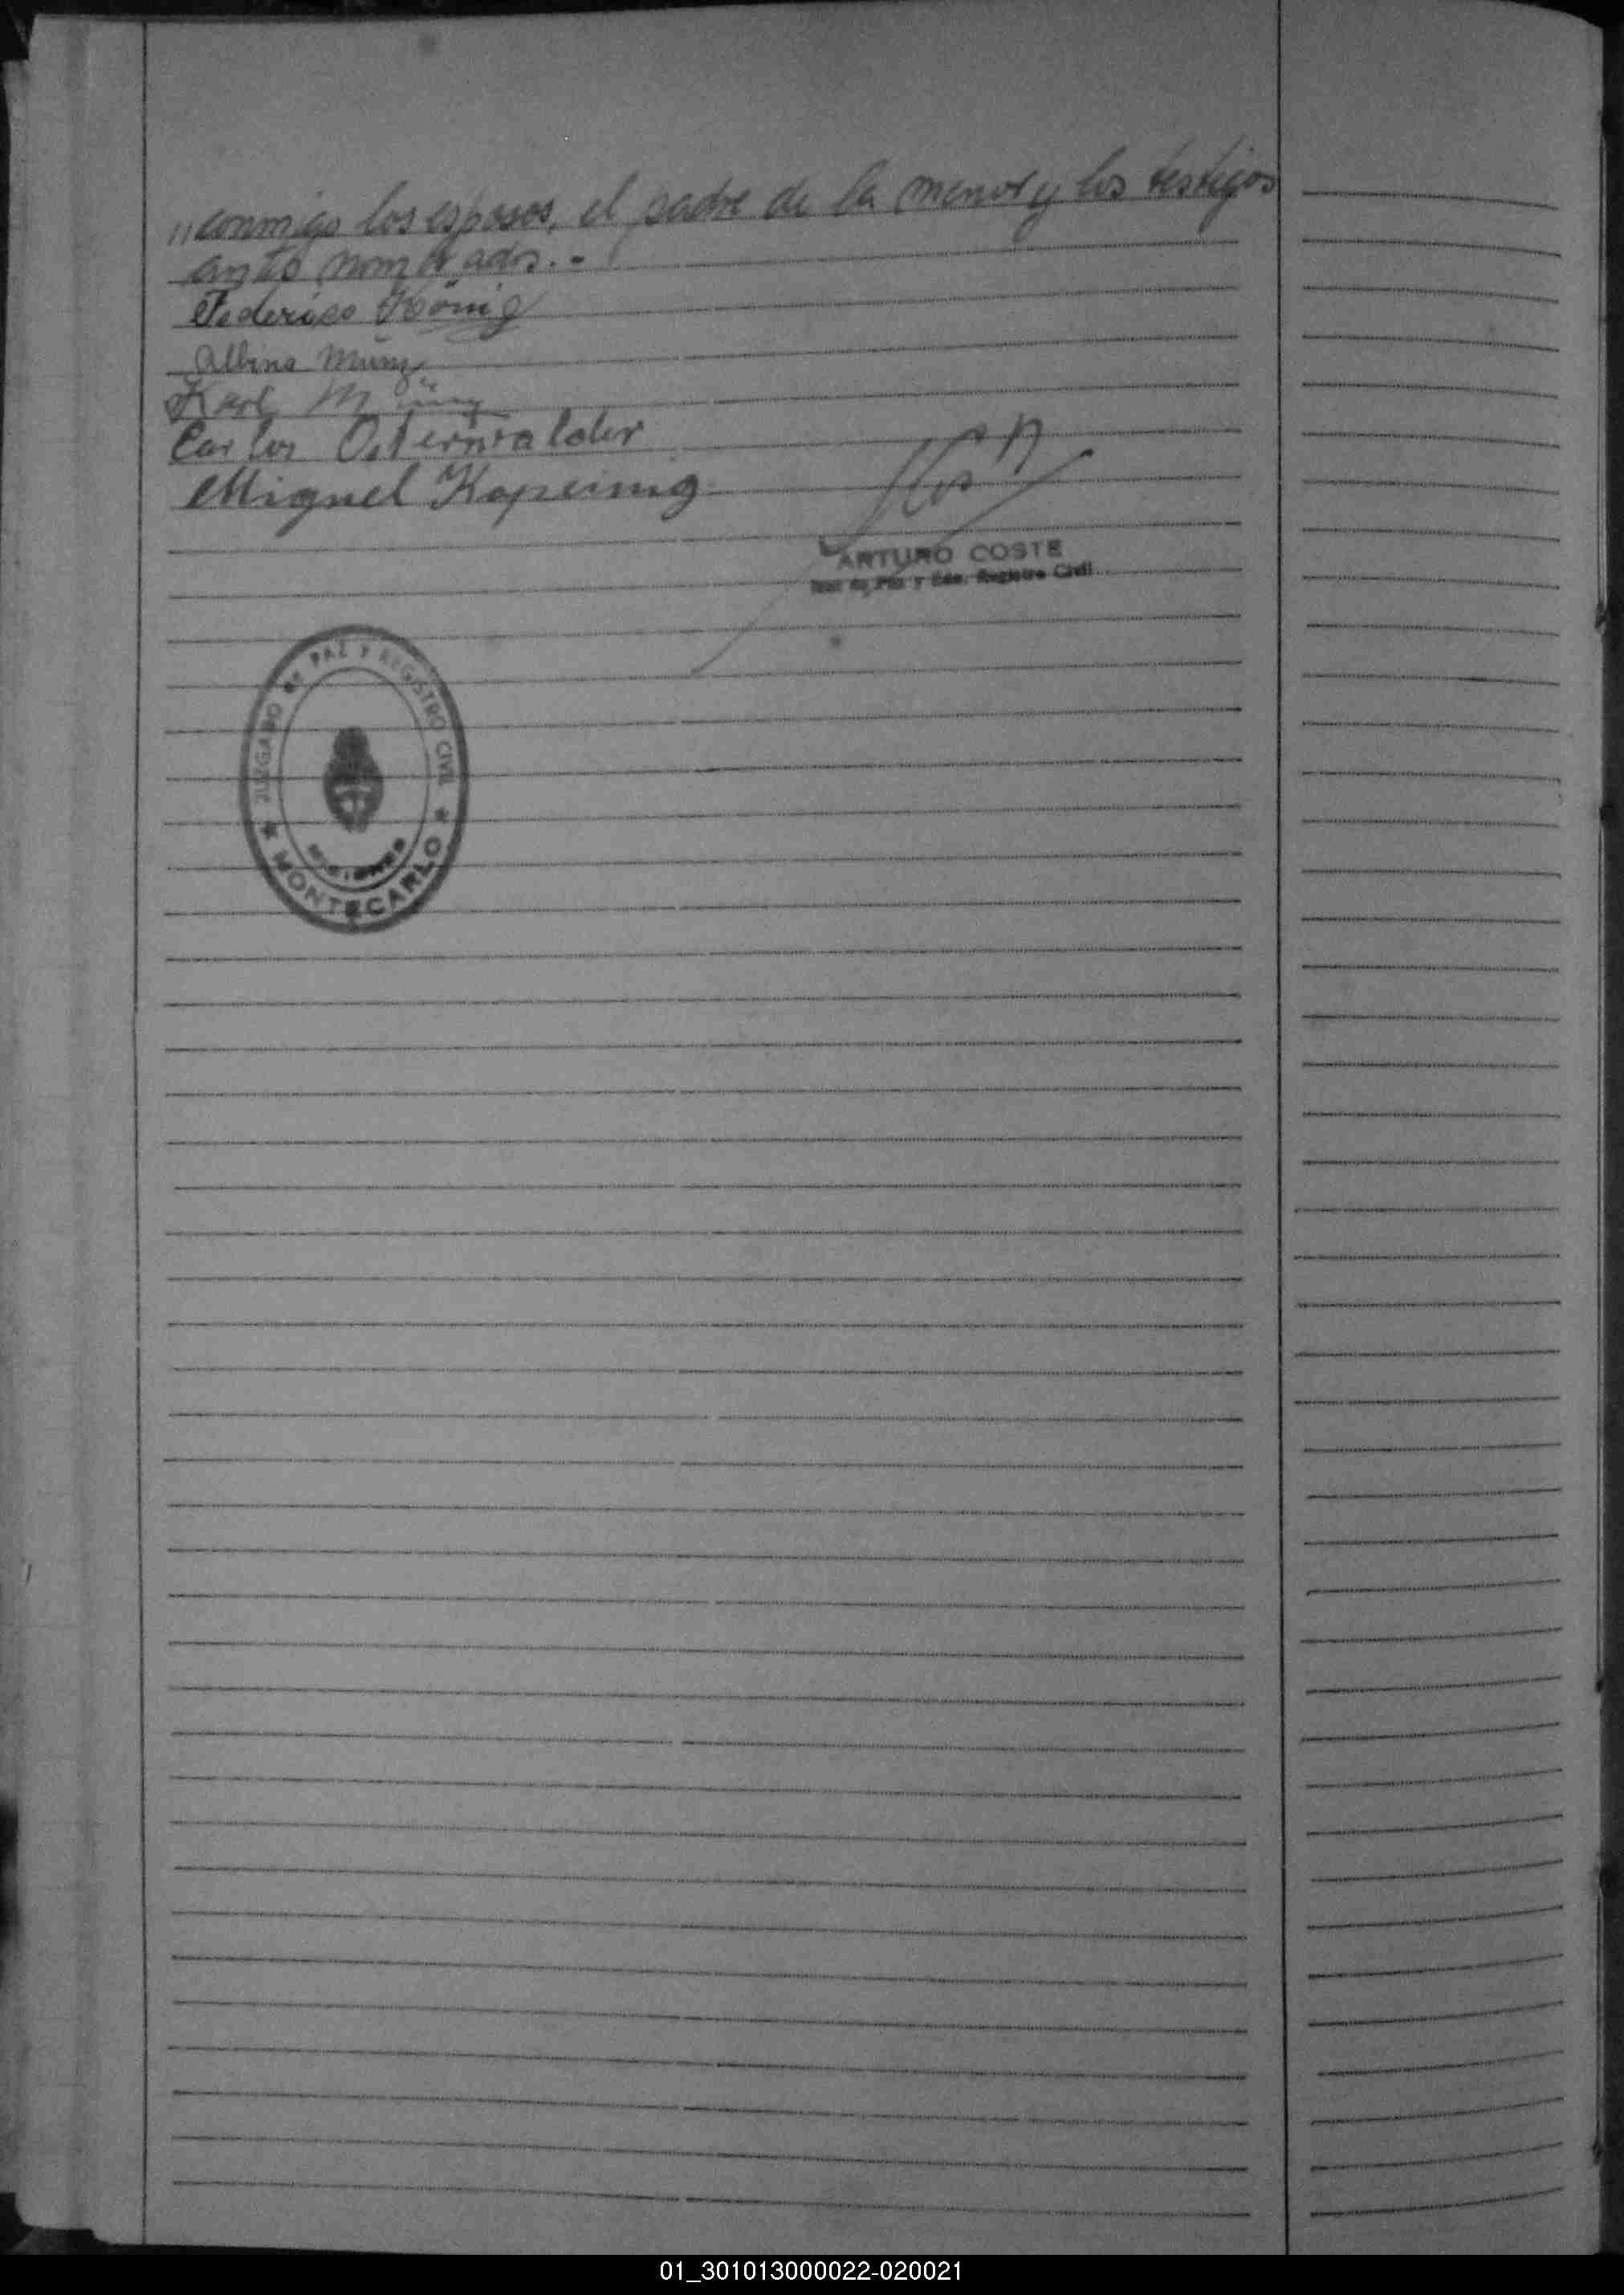 "conmigo los esposos, el padre de la menor y los testigos
antes nombrados.-
Federico König
Albina Münz
Karl Münz
Carlos Osterwalder
Miguel Kopeinig
ARTURO COSTE
Juez de Paz y Edo. Registro Civil
JUZGADO DE PAZ Y REGISTRO CIVIL
MISIONES
★ MONTECARLO ★
01_301013000022-020021